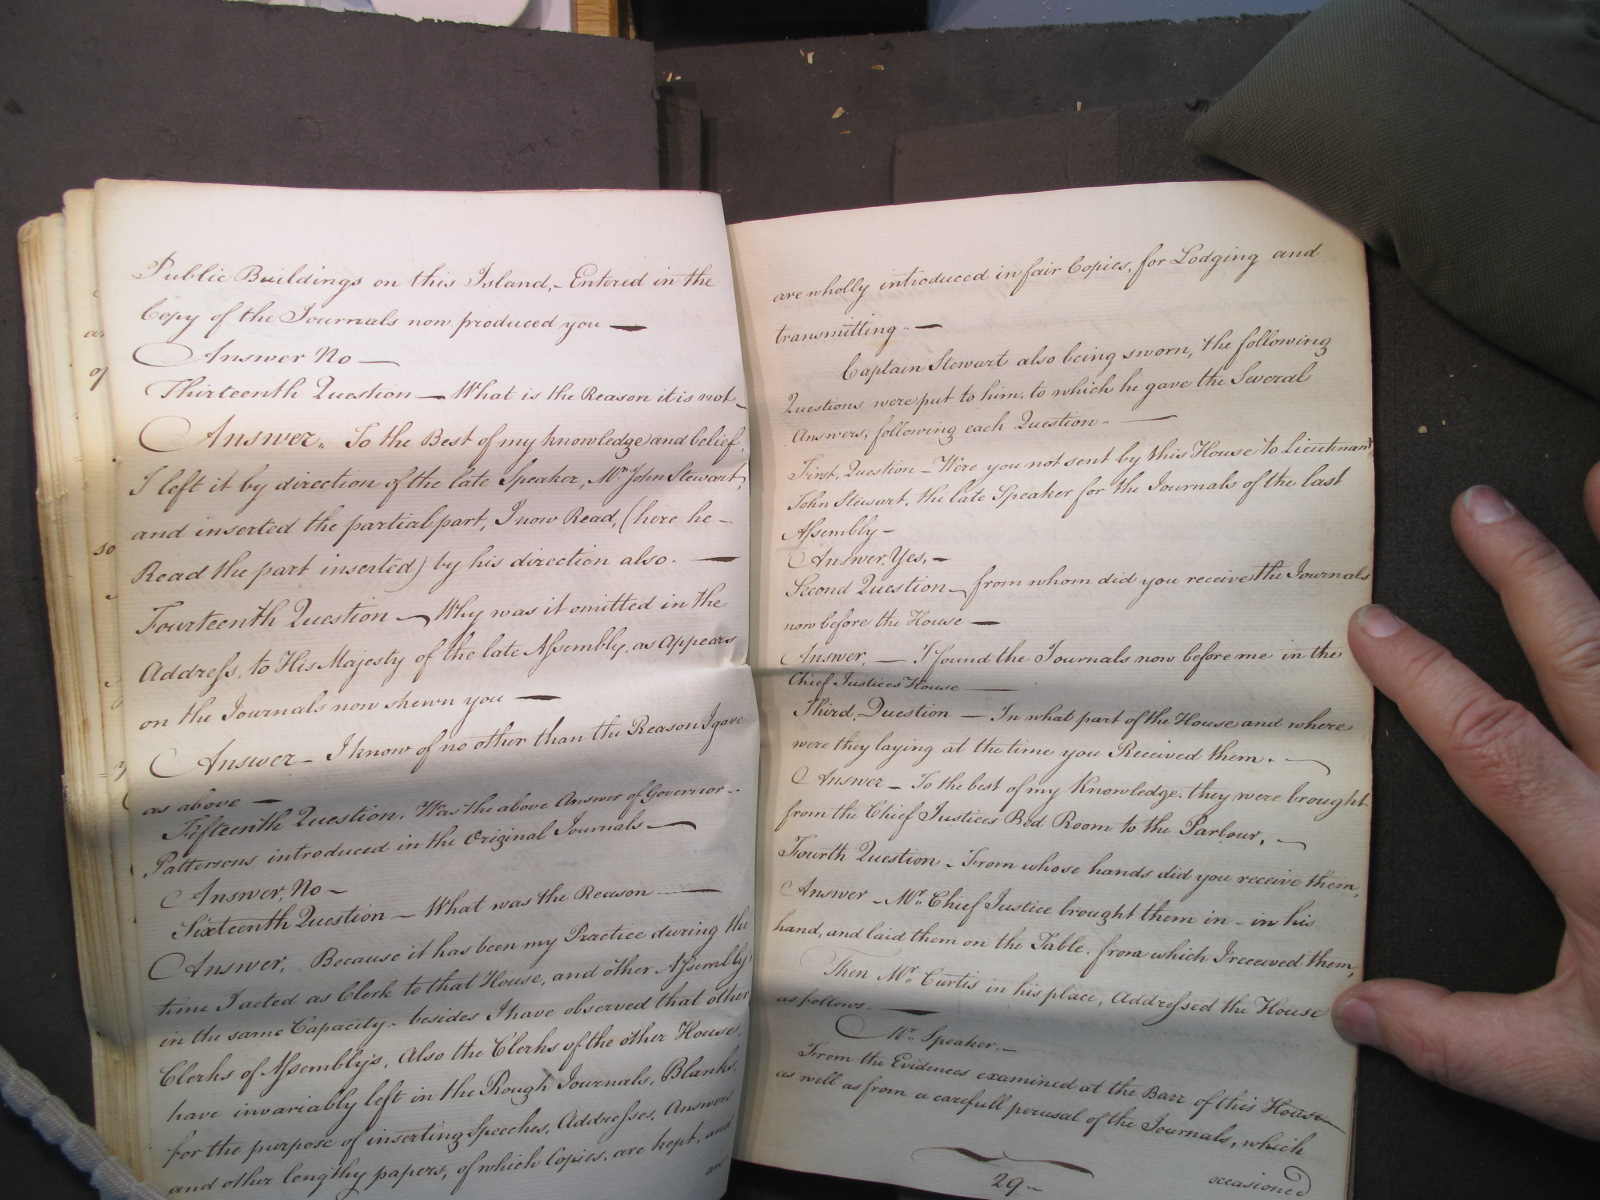 Public Buildings on this Island,- Entered in the
Copy of the Journals now produced you —
Answer No —
Thirteenth Question — What is the Reason it is not -
Answer. To the Best of my knowledge and belief,
I left it by direction of the late Speaker, Mr. John Stewart,
and inserted the partial part, I now Read, (here he -
Read the part inserted) by his direction also. —
Fourteenth Question — Why was it omitted in the
Address, to His Majesty of the late Assembly, as Appears
on the Journals now shewn you —
Answer - I know of no other than the Reason I gave
as above —
Fifteenth Question. Was the above Answer of Governor -
Pattersons introduced in the Original Journals —
Answer, No -
Sixteenth Question — What was the Reason —
Answer. Because it has been my Practice during the
time I acted as Clerk to that House, and other Assembly's
in the same Capacity - besides I have observed that other
Clerks of Assembly's, Also the Clerks of the other House,
have invariably left in the Rough Journals, Blanks,
for the purpose of inserting Speeches, Addresses, Answers
and other lengthy papers, of which Copies, are kept, and
are
are wholly introduced in fair Copies, for Lodging and
transmitting. —
Captain Stewart also being sworn, the following
Questions were put to him, to which he gave the Several
Answers, following each Question. —
First, Question - Were you not sent by this House to Lieutenant
John Stewart, the late Speaker for the Journals of the last
Assembly -
Answer, Yes, -
Second Question - from whom did you receive the Journals
now before the House —
Answer. — I found the Journals now before me in the
Chief Justices House —
Third, Question — In what part of the House and where
were they laying at the time you Received them. —
Answer - To the best of my Knowledge. they were brought
from the Chief Justices Bed Room to the Parlour, —
Fourth Question - From whose hands did you receive them,
Answer - Mr. Chief Justice brought them in - in his
hand, and laid them on the Table. from which I received them,
Then Mr. Curtis in his place, Addressed the House
as follows —
Mr. Speaker. -
From the Evidences examined at the Barr of this House
as well as from a carefull perusal of the Journals, which
occasioned
29